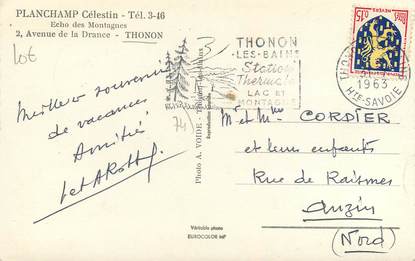 PLANCHAMP Célestin - Tél. 3-46
Echo des Montagnes
2, Avenue de la Drance - THONON
lot
74
Meilleurs souvenirs
de vacances
Amitiés
THONON
-LES-BAINS
Station
Thermale
LAC ET
MONTAGNE
1963
HTE-SAVOIE
0,15
M et Mme CORDIER
et leurs enfants
Rue de Raismes
Anzin
(Nord)
Photo A. VOIDE
Véritable photo
EUROCOLOR